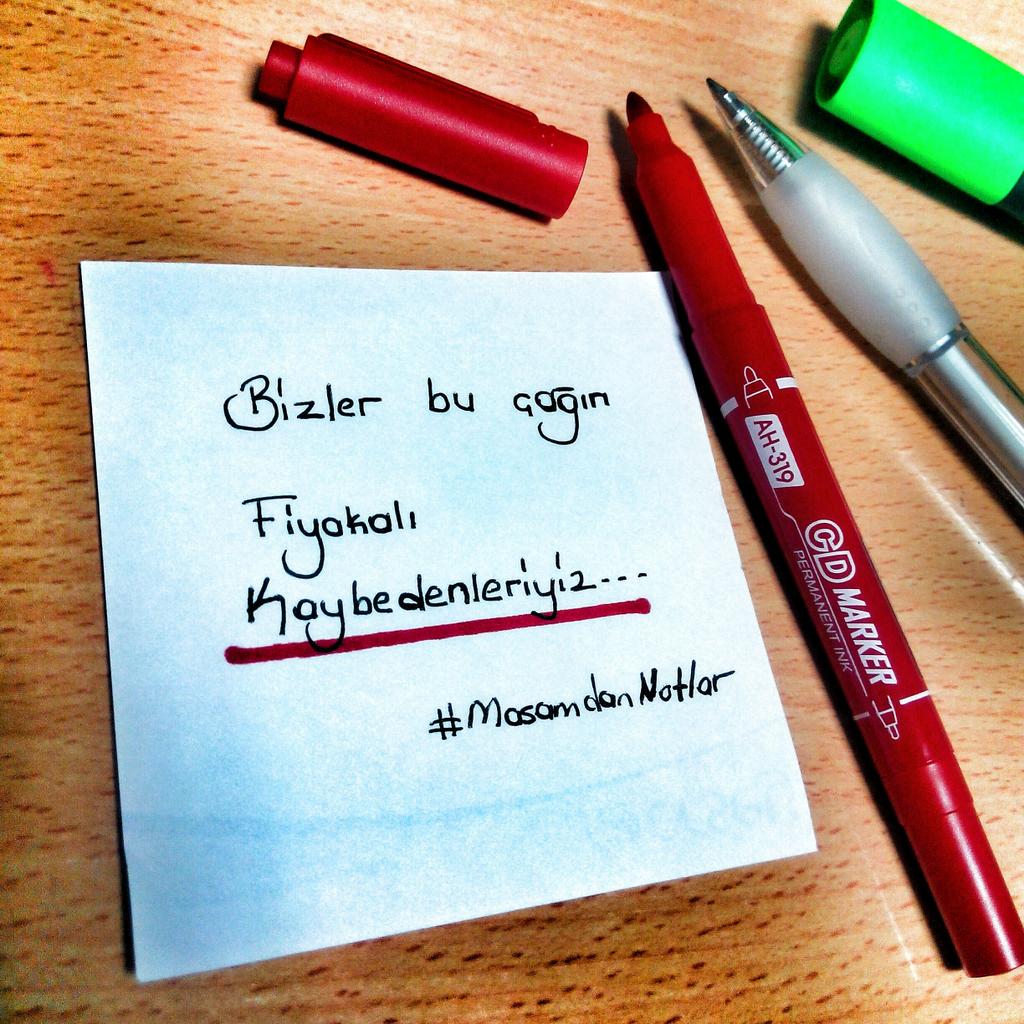 Bizler bu çağın
Fiyakalı
Kaybedenleriyiz...
#MasamdanNotlar
AH-319
CD MARKER
PERMANENT INK